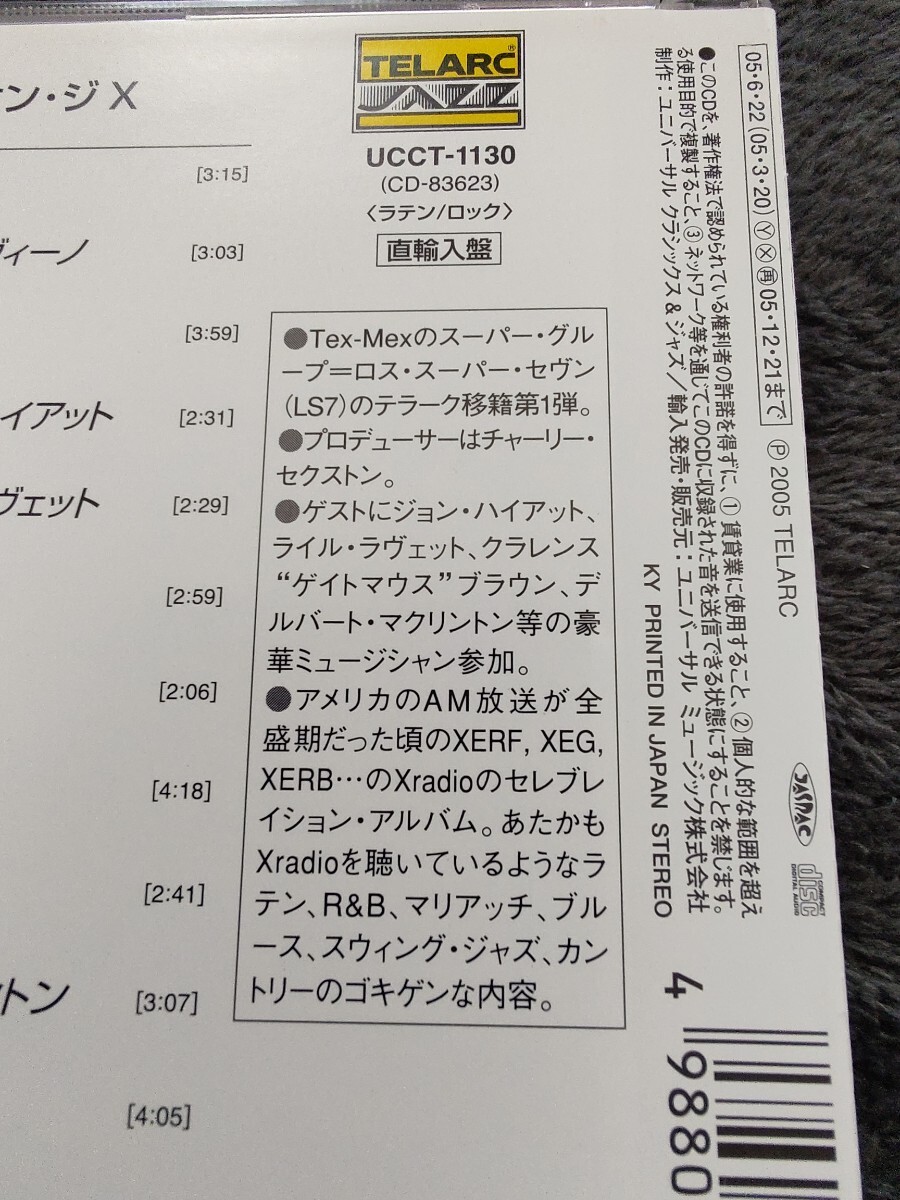 ン・ジ X
[3:15]
ヴィーノ [3:03]
[3:59]
イアット [2:31]
ヴェット [2:29]
[2:59]
[2:06]
[4:18]
[2:41]
トン [3:07]
[4:05]
TELARC®
JAZZ
UCCT-1130
(CD-83623)
〈ラテン/ロック〉
直輸入盤
●Tex-Mexのスーパー・グル
ープ=ロス・スーパー・セヴン
(LS7)のテラーク移籍第1弾。
●プロデューサーはチャーリー・
セクストン。
●ゲストにジョン・ハイアット、
ライル・ラヴェット、クラレンス
“ゲイトマウス”ブラウン、デ
ルバート・マクリントン等の豪
華ミュージシャン参加。
●アメリカのAM放送が全
盛期だった頃のXERF, XEG,
XERB…のXradioのセレブレ
イション・アルバム。あたかも
Xradioを聴いているようなラ
テン、R&B、マリアッチ、ブル
ース、スウィング・ジャズ、カン
トリーのゴキゲンな内容。
05・6・22 (05・3・20) Ⓨ Ⓧ ㊢05・12・21まで Ⓟ 2005 TELARC
●このCDを、著作権法で認められている権利者の許諾を得ずに、① 賃貸業に使用すること、② 個人的な範囲を超え
る使用目的で複製すること、③ ネットワーク等を通じてこのCDに収録された音を送信できる状態にすることを禁じます。
制作：ユニバーサル クラシックス & ジャズ／輸入発売・販売元：ユニバーサル ミュージック株式会社
KY PRINTED IN JAPAN STEREO
JASRAC
COMPACT
disc
DIGITAL AUDIO
4 9880